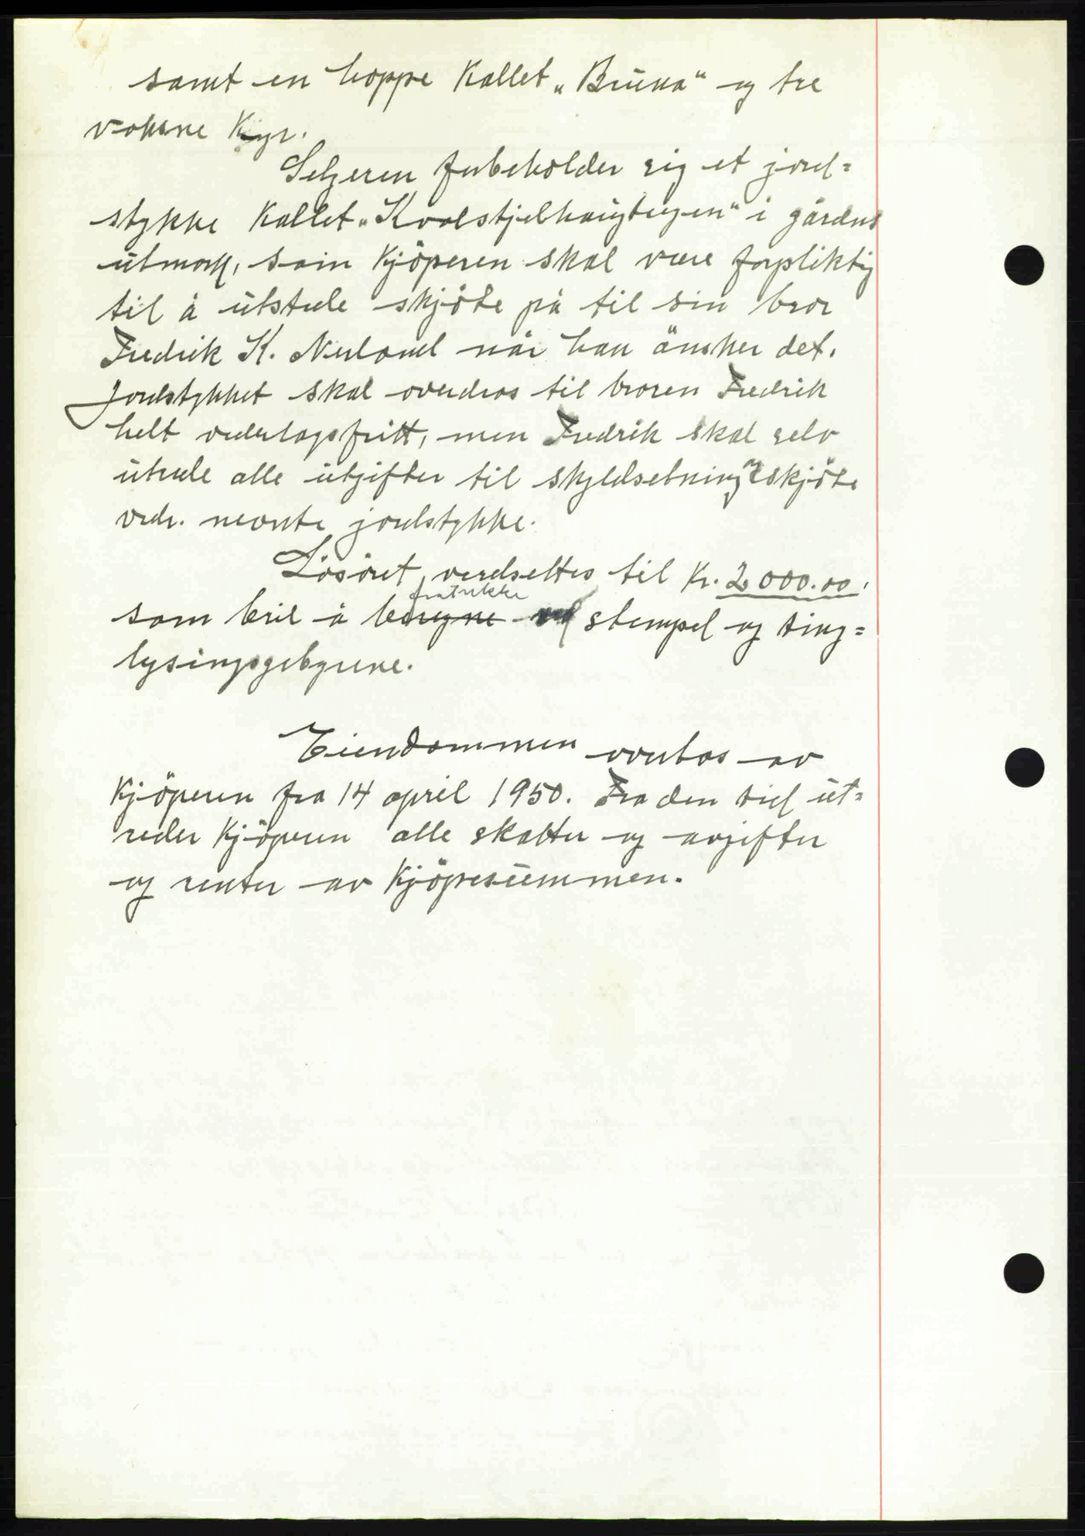 samt en hoppe kallet „Bruna“ og tre
voksne kyr.
Selgeren forbeholder sig et jord=
stykke kallet „Kvalstjelhaugteigen“ i gårdens
utmark, som kjöperen skal være forpliktig
til å utstede skjöte på til sin bror
Fredrik K. Nerland når han önsker det.
Jordstykket skal overdras til broren Fredrik
helt vederlagsfritt, men Fredrik skal selv
utrede alle utgifter til skyldsetning og skjöte
vedr. nevnte jordstykke.
Lösöret verdsettes til kr. 2000.00.
fratrekke
som blir å beregne ved stempel og ting=
lysingsgebyrene.
Eiendommen overtas av
kjöperen fra 14 april 1950. Fra den tid ut=
reder kjöperen alle skatter og avgifter
og renter av kjöpesummen.